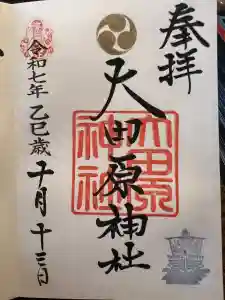 奉拝
大田原神社
令和七年乙巳歳十月十三日
大田原
神社